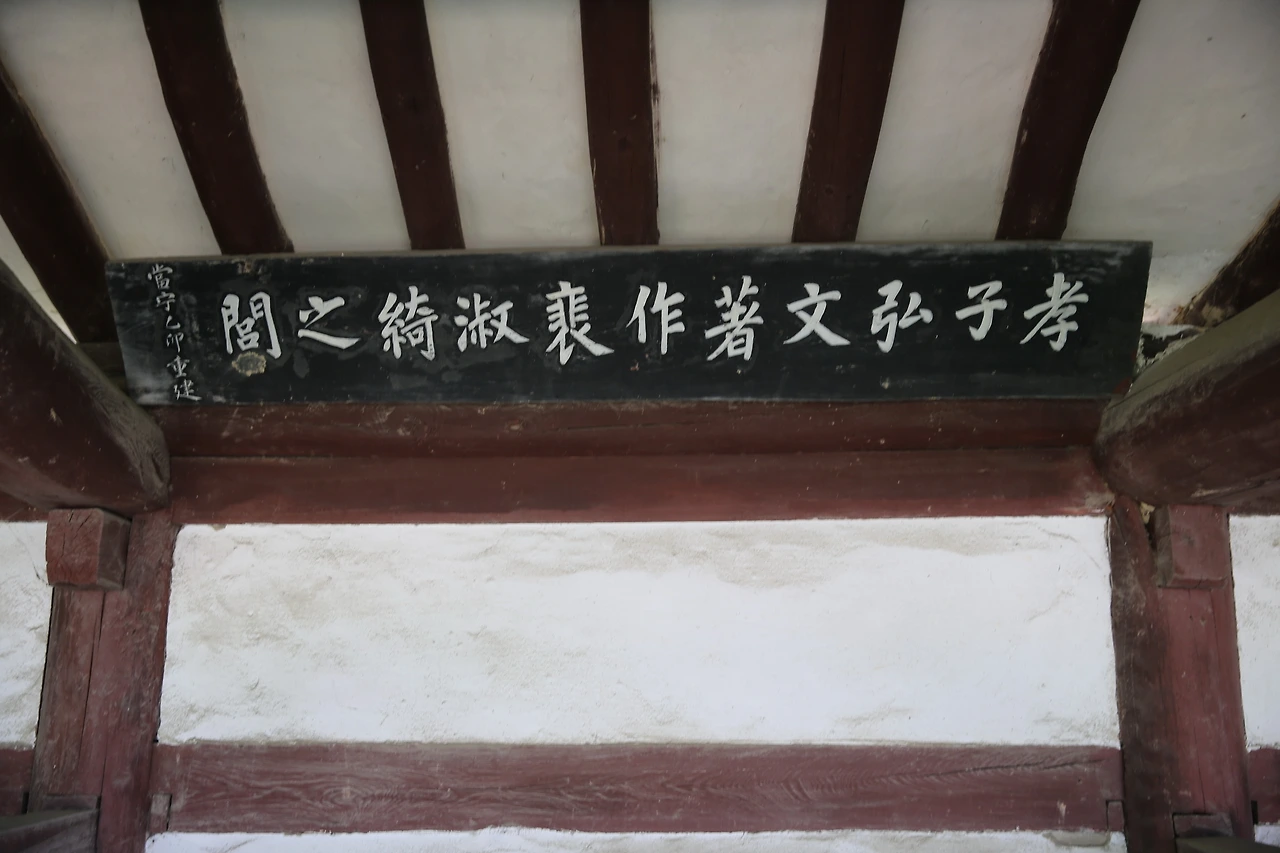 孝子弘文著作裵淑綺之閭
當宁乙卯重建